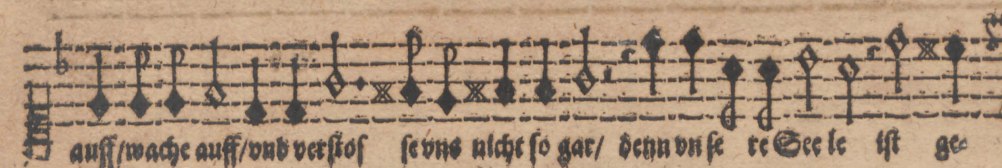 auff/wache auff/vnd verstos se vns nicht so gar/ denn vn se re See le ist ge-